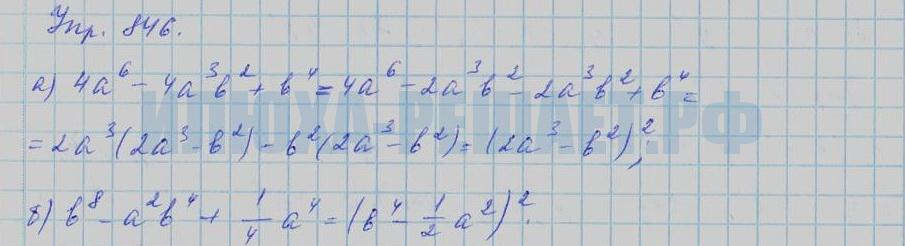 Упр. 846.
а) 4a⁶ - 4a³b² + b⁴ = 4a⁶ - 2a³b² - 2a³b² + b⁴ =
= 2a³(2a³ - b²) - b²(2a³ - b²) = (2a³ - b²)²;
б) b⁸ - a²b⁴ + 1/4 a⁴ = (b⁴ - 1/2 a²)².
ИЛЮХА-РЕШАЕТ.РФ